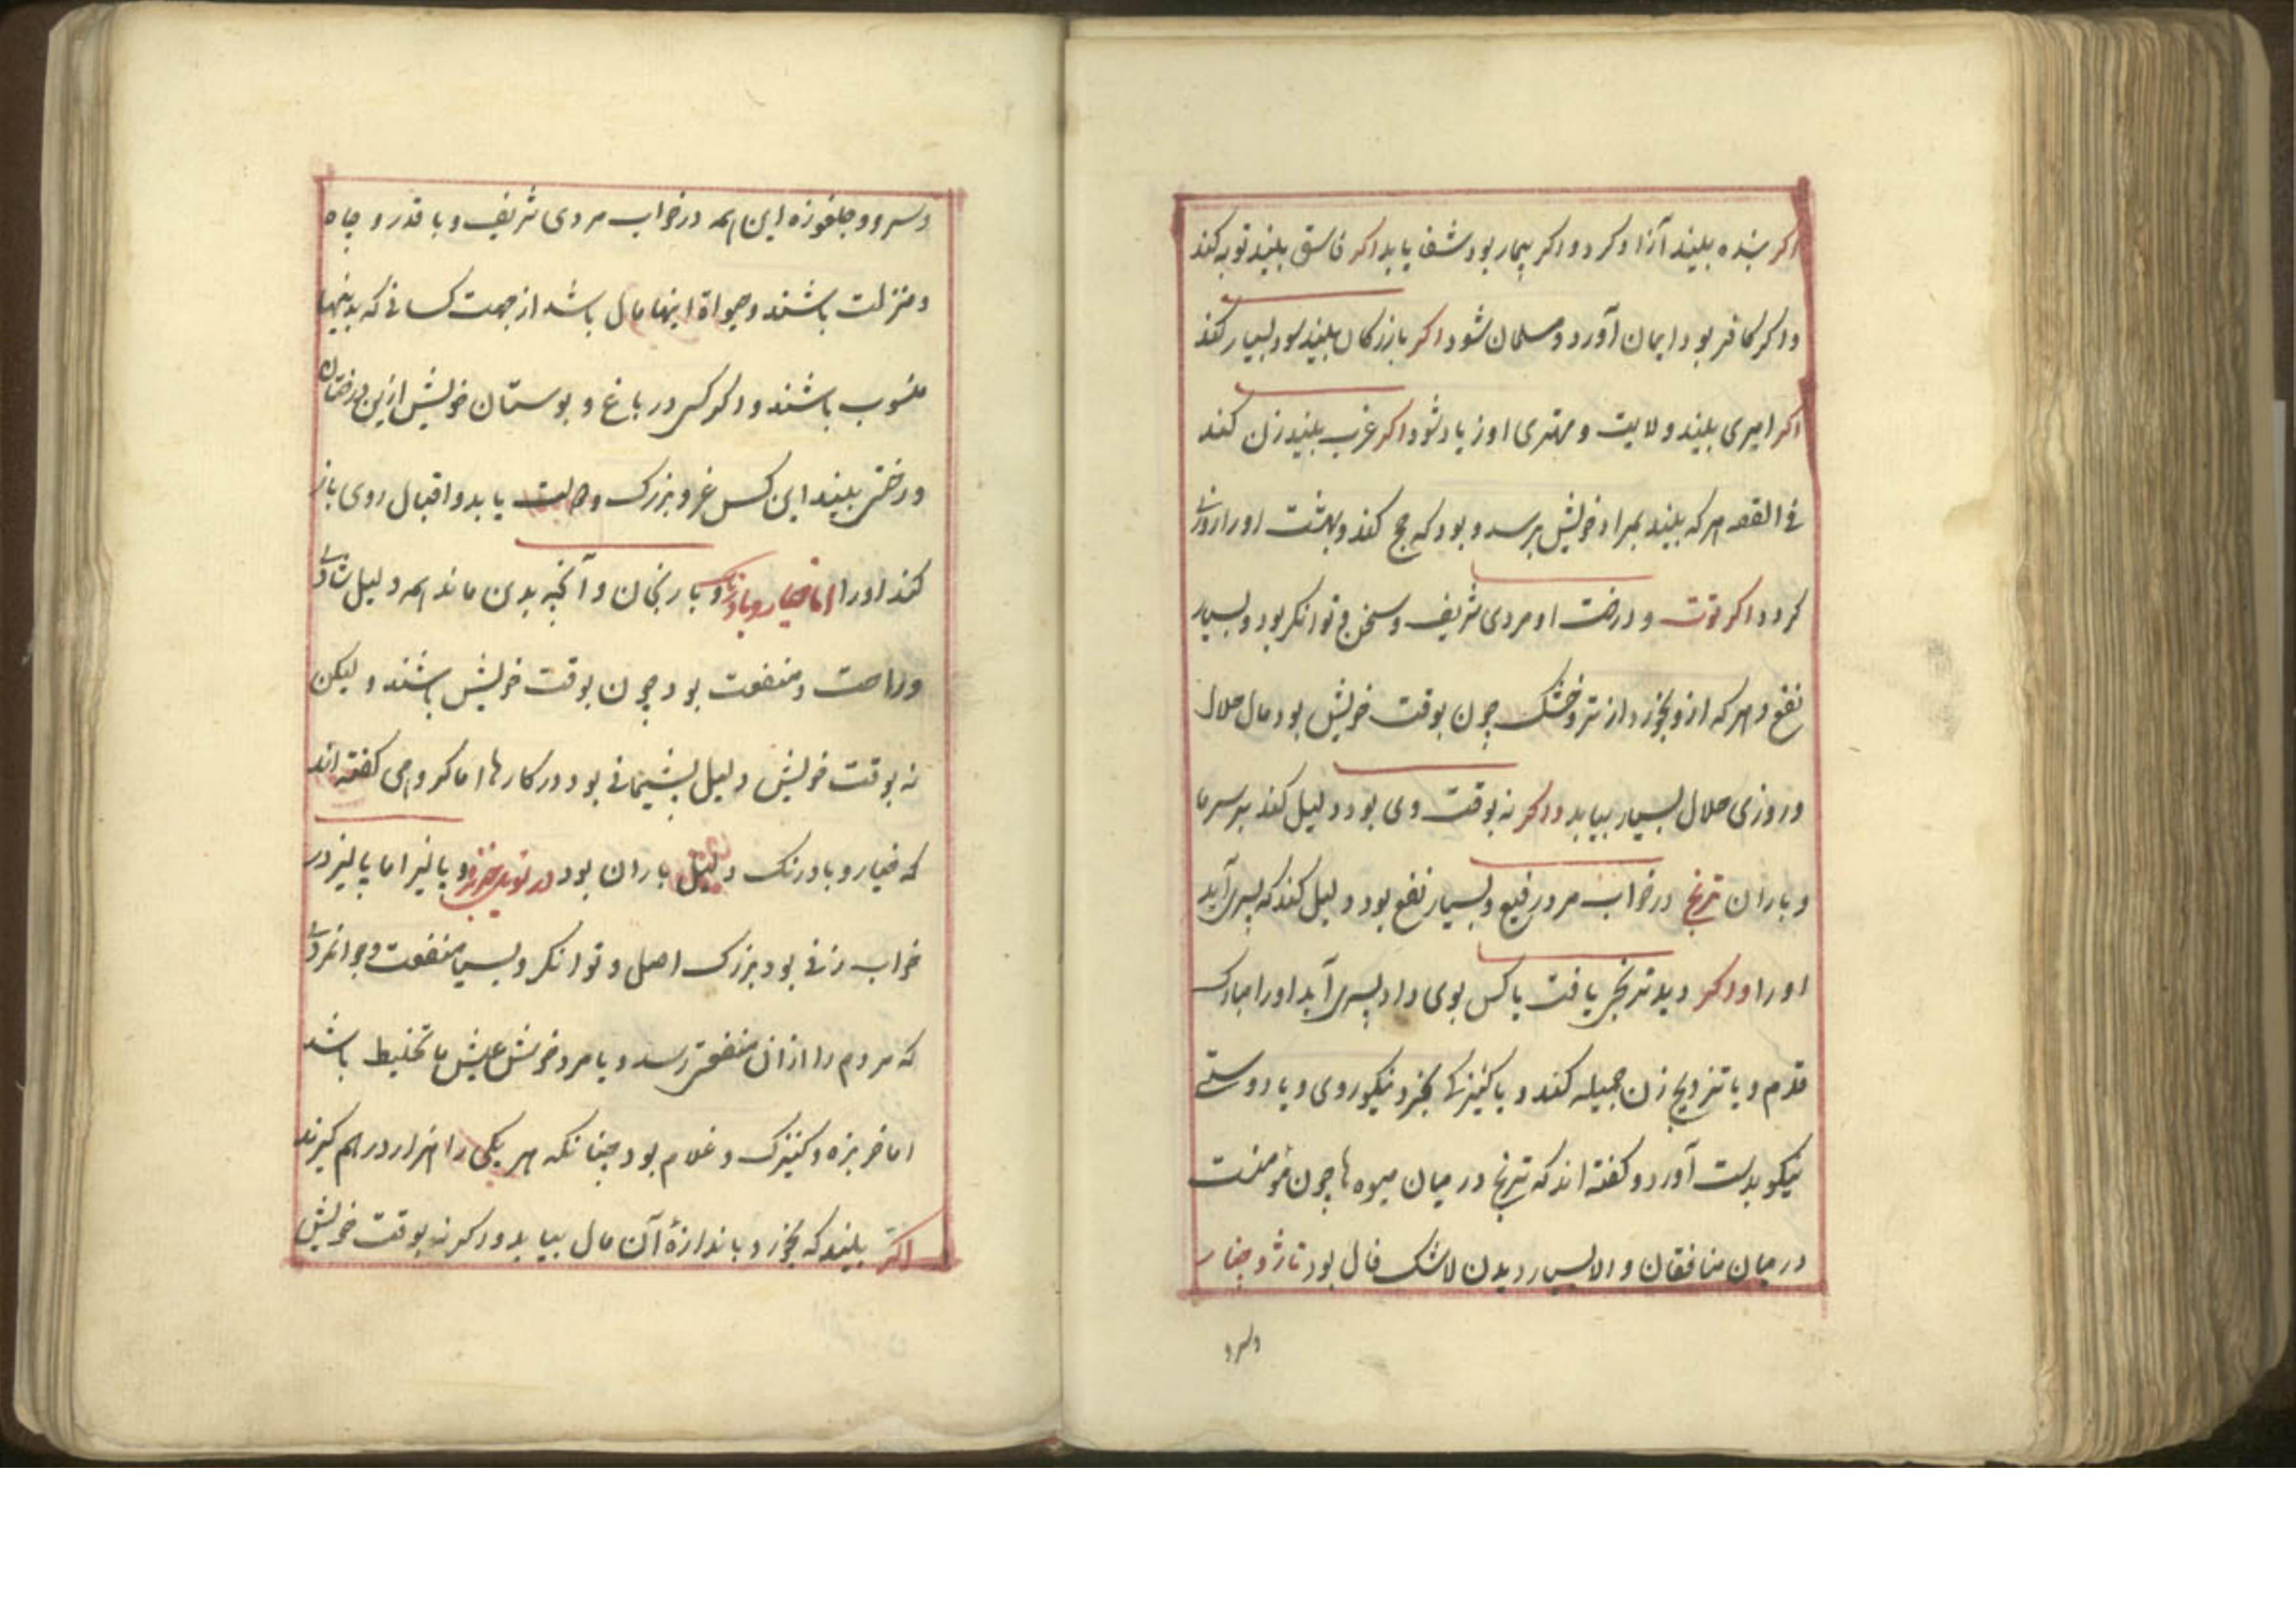 اکر بنده بیند آزاد کردد و اکر بیمار بود شفا یابد اکر فاسق بیند توبه کند
و اکر کافر بود ایمان آورد و مسلمان شود اکر بازرکان بیند سود بسیار کند
اکر امیری بیند ولایت و مهتری او زیاد شود اکر عزب بیند زن کند
فی القصه هر که بیند بمراد خویش برسد و بود که حج کند و بهشت او را روزی
کردد اکر توت و درخت او مردی شریف و سخی و توانکر بود و بسیار
نفع و هر که ازو بخورد از تر و خشک چون بوقت خویش بود مال حلال
و روزی حلال بسیار بیابد و اکر نه بوقت وی بود دلیل کند بر سرما
و باران ترنج در خواب مرد رفیع و بسیار نفع بود دلیل کند که پسری آید
او را و اکر دید ترنجی یافت یا کس بوی داد پسری آید او را مبارک
قدم و یا تزویج زن جمیله کند و یا کنیزکی بخرد نیکو روی و یا دوستی
نیکو بدست آورد و کفته اند که ترنج در میان میوه ها چون مؤمنست
در میان منافقان و الا بسیار دیدن لاشک فال بود ناژ و چنار
و سرو
و سرو و جلغوزه این همه در خواب مردی شریف و با قدر و جاه
و منزلت باشند و میوۀ اینها مال باشد از جهت کسانی که بدینها
منسوب باشند و اکر کسی در باغ و بوستان خویش ازین درختان
درختی بیند این کس عز و بزرک یابد و اقبال روی باز
کند او را اما خیار و بادرنک و بارنجان و آنچه بدین ماند همه دلیل شادی
و راحت و منفعت بود چون بوقت خویش باشند و لیکن
نه بوقت خویش دلیل پشیمانی بود در کارها اما کروهی کفته اند
که خیار و بادرنک دلیل باران بود خربزه و پالیز اما پالیز در
خواب زنی بود بزرک اصل و توانکر و بسی منفعت و جوانمردی
که مردم را از ان منفعتی رسد و یا مرد خوش عیش با تخلیط باشد
اما خربزه و کنیزک و غلام بود چنانکه هر یکی را هزار درهم کیرند
اکر بیند که بخورد باندازۀ آن مال بیابد و اکر نه بوقت خویش